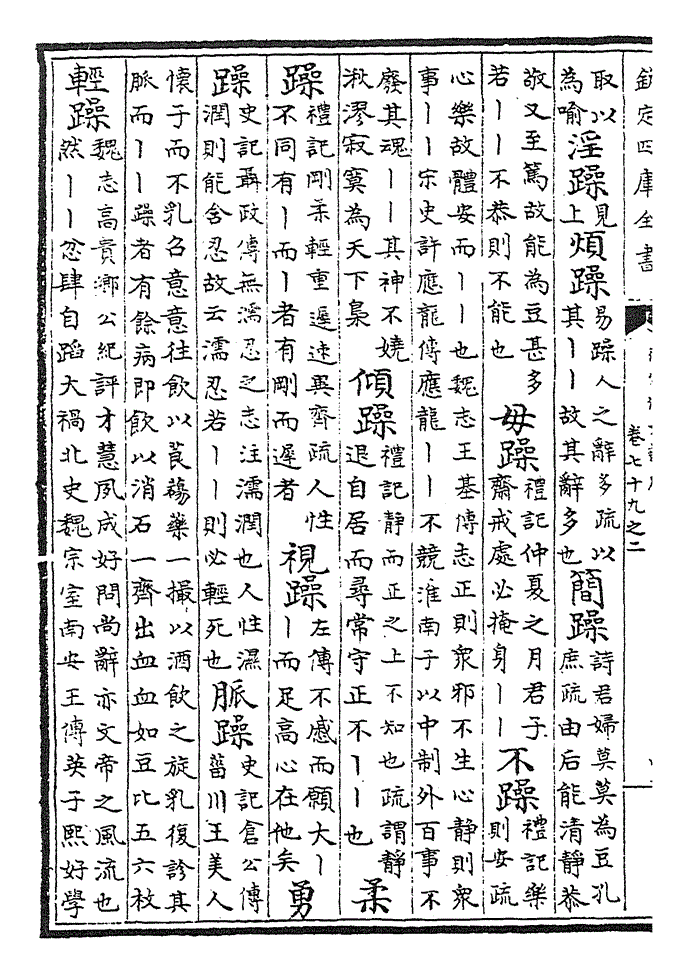 欽定四庫全書
卷七十九之二
取以為喻淫躁見上煩躁易躁人之辭多疏以其丨丨故其辭多也簡躁詩君婦莫莫為豆孔庶疏由后能清靜恭
敬又至篤故能為豆甚多若丨丨不恭則不能也毋躁禮記仲夏之月君子齋戒處必掩身丨丨不躁禮記樂則安疏
心樂故體安而丨丨也魏志王基傳志正則衆邪不生心靜則衆事丨丨宋史許應龍傳應龍丨丨不競淮南子以中制外百事不
廢其魂丨丨其神不嬈湫漻寂寞為天下梟傾躁禮記靜而正之上不知也疏謂靜退自居而尋常守正不丨丨也柔
躁禮記剛柔輕重遲速異齊疏人性不同有丨而丨者有剛而遲者視躁左傳不感而願大丨丨而足高心在他矣勇
躁史記聶政傳無濡忍之志注濡潤也人性濕潤則能舍忍故云濡忍若丨丨則必輕死也脈躁史記倉公傳菑川王美人
懷子而不乳召意意往飲以莨藥一撮以酒飲之旋乳復診其脈而丨丨躁者有餘病即飲以消石一齊出血血如豆比五六枚
輕躁魏志高貴鄉公紀評才慧夙成好問尚辭亦文帝之風流也然丨丨忿肆自蹈大禍北史魏宗室南安王傳英子熙好學